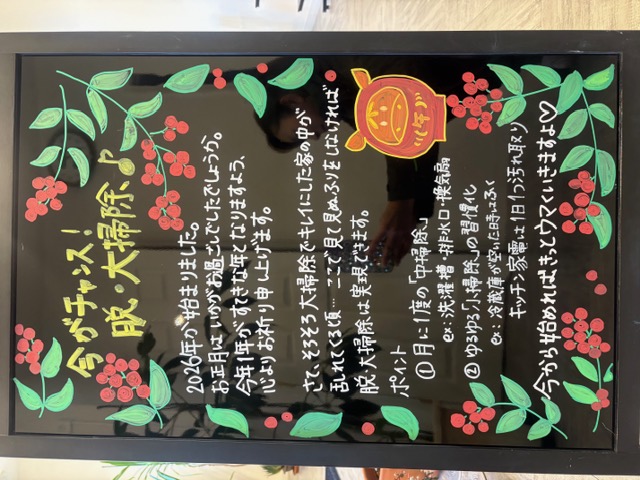 今がチャンス！
脱・大掃除♪
2026年が始まりました。
お正月はいかがお過ごしでしたでしょうか。
今年1年がすてきな年となりますよう、
心よりお祈り申し上げます。
さて、そろそろ大掃除でキレイにした家の中が
乱れてくる頃… ここで見て見ぬふりをしなければ
脱大掃除は実現できます。
ポイント
①月に1度の「中掃除」
ex:洗濯槽・排水口・換気扇
②ゆるゆる「小掃除」の習慣化
ex:冷蔵庫が空いた時はふく
キッチン家電は1日1つ汚れ取り
今から始めればきっとウマくいきますよ♡